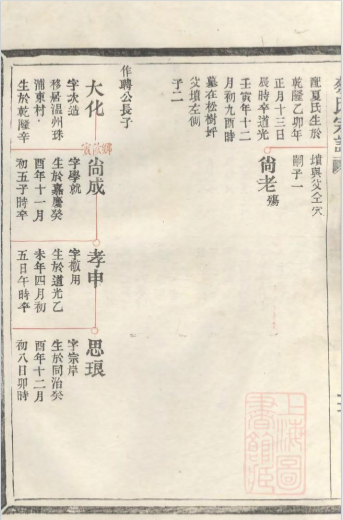 配夏氏生於
乾隆乙卯年
正月十三日
辰時卒道光
壬寅年十二
月初九酉時
墓在松樹坪
父墳左側
子二
墳與父仝穴
嗣子一
尙老 殤
作聘公長子
大化
字次造
移居溫州珠
浦東村
生於乾隆辛
尙成
字學就
生於嘉慶癸
酉年十一月
初五子時卒
孝申
字敬用
生於道光乙
未年四月初
五日午時卒
思琅
字宗岸
生於同治癸
酉年十二月
初八日卯時
氏宗譜
上海圖
書館藏